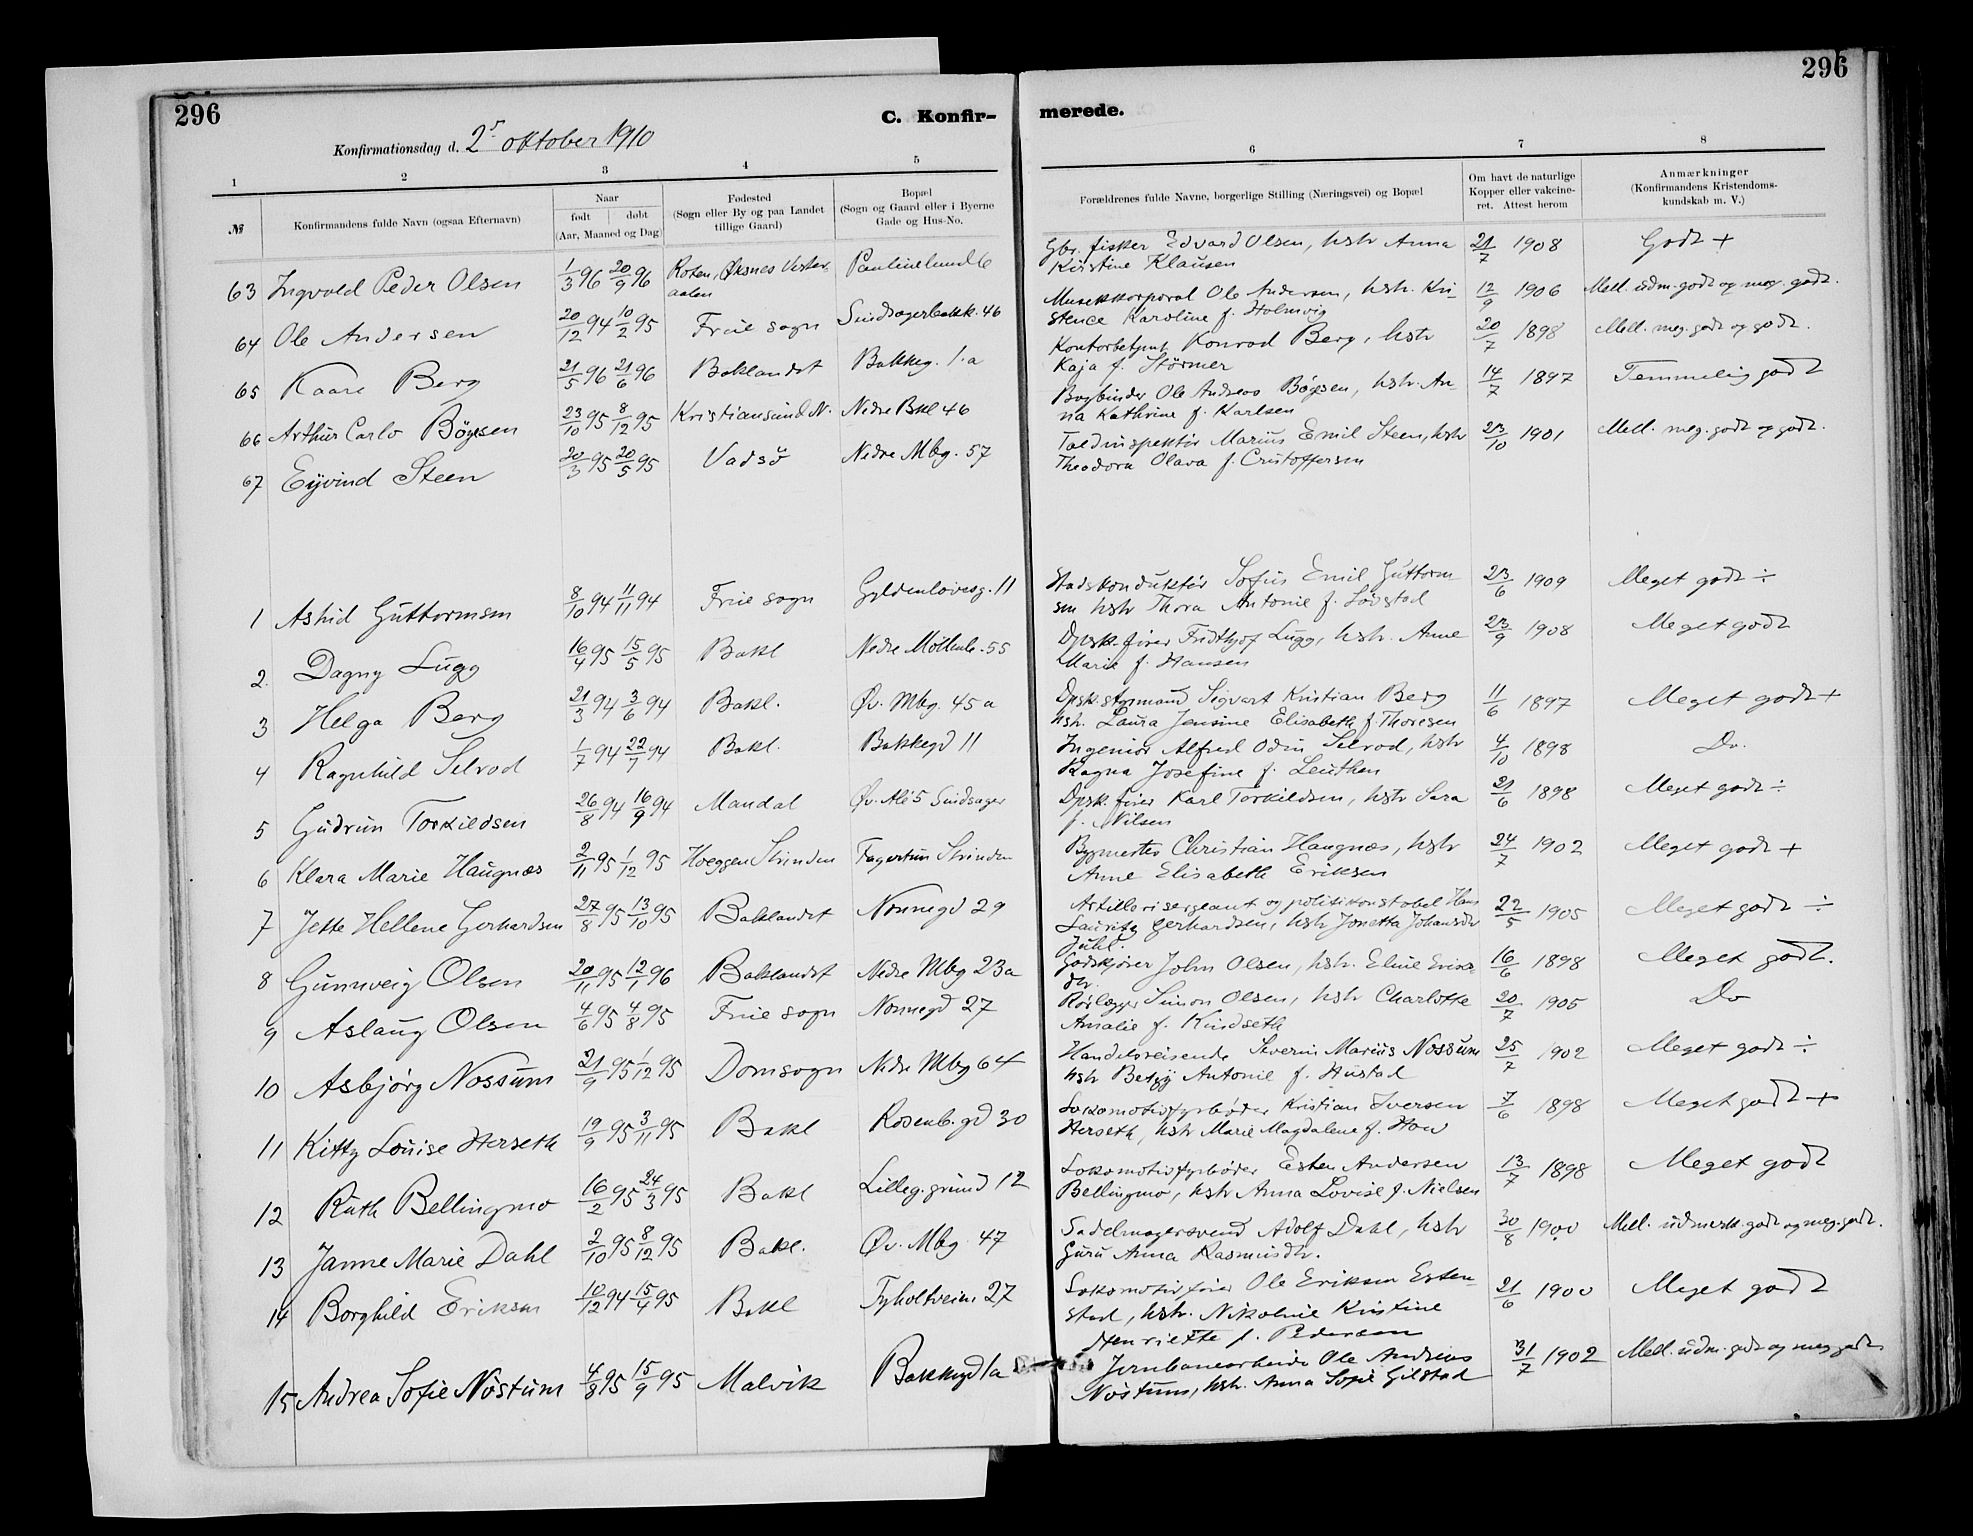 296
C. Konfir-
merede.
296
Konfirmationsdag d. 2 oktober 1910
1 2 3 4 5 6 7 8
№ Konfirmandens fulde Navn (ogsaa Efternavn)
Naar
født døbt
(Aar, Maaned og Dag)
Fødested
(Sogn eller By og paa Landet
tillige Gaard)
Bopæl
(Sogn og Gaard eller i Byerne
Gade og Hus-No.
Forældrenes fulde Navne, borgerlige Stilling (Næringsvei) og Bopæl
Om havt de naturlige
Kopper eller vakcine-
ret. Attest herom
Anmærkninger
(Konfirmandens Kristendoms-
kundskab m. V.)
63 Ingvald Peder Olsen 1/3 96 20/9 96 Roten, Øksnes Vester-
aalen
Paulinelund 6
Gbr. fisker Edvard Olsen, hstr Anna
Kirstine Klausen
21/7 1908 Godt +
64 Ole Andersen 20/12 94 10/2 95 Frue sogn
Musikkorporal Ole Andersen, hstr. Kri-
stence Karoline f. Holmvig
12/9 1906 Mell. udm. godt og meg. godt.
65 Kaare Berg 21/5 96 21/6 96 Baklandet Bakkeg. 1.a
Kontorbetjent Konrad Berg, hstr
Kaja f. Störmer
20/7 1898 Mell. meg. godt og godt.
66 Arthur Carlo 23/10 95 8/12 95 Kristiansund N. Nedre Bkl 46
Bogbinder Ole Andreas hstr. An
na Kathrine f. Karlsen
14/7 1897 Temmelig godt
67 Eyvind Steen 20/3 95 20/5 95 Vadsö Nedre Mbg. 57
Toldinspektör Marius Emil Steen, hstr
Theodora Olava f. Cristoffersen
23/10 1901 Mell. meg. godt og godt.
1 Astrid Guttormsen 8/10 94 11/11 94 Frue sogn Gyldenløvesg. 11
Stadskonduktör Sofus Emil Guttorm
sen hstr Thora Antonie f. Lövstad
23/6 1909 Meget godt ÷
2. Dagny Lugg 16/4 95 15/5 95 Bakl Nedre Möllenb. 55
Dpsk. förer Fridthjof Lugg, hstr. Anne
Marie f. Hansen
23/9 1908 Meget godt
3 Helga Berg 21/3 94 3/6 94 Bakl. Øv. Mbg. 45 a
Dpsk. styrmand Sigvart Kristian Berg
hstr. Laura Jensine Elisabeth f. Thoresen
11/6 1897 Meget godt +
4 Ragnhild Selvod 1/7 94 22/7 94 Bakl. Bakkegd 11
Ingeniör Alfred Odin Selvod, hstr
Ragna Josefine f. Leuthen
4/10 1898 Do.
5 Gudrun Torkildsen 26/8 94 16/9 94 Mandal Øv. Alé 5 Sindsager
Dpsk. förer Karl Torkildsen, hstr Sara
f. Nilsen
21/6 1898 Meget godt ÷
6 Klara Marie Haugnæs 2/11 95 1/12 95 Hoeggen Strinden Fagertun Strinden
Bygmester Christian Haugnæs, hstr
Anne Elisabeth Eriksen
24/7 1902 Meget godt +
7 Jette Hellene Gerhardsen 27/8 95 13/10 95 Baklandet Nonnegd 29
Artillerisergeant og politikonstabel Hans
Lauritz Gerhardsen, hstr Jonetta Johansdr
Juhl.
22/5 1905 Meget godt ÷
8 Gunnveig Olsen 20/11 95 12/1 96 Baklandet Nedre Mbg 23a
Godskjører John Olsen, hstr. Eline Eriks-
dr.
16/6 1898 Meget godt.
9 Aslaug Olsen 4/6 95 4/8 95 Frue sogn Nonnegd 27
Rørlægger Simon Olsen, hstr Charlotte
Amalie f. Kindseth
20/7 1905 Do
10 Asbjørg Nossum 21/9 95 1/12 95 Domsogn Nedre Mbg 64
Handelsreisende Severin Marius Nossum
hstr Betzy Antonie f. Hustad
25/7 1902 Meget godt ÷
11 Kitty Louise Herseth 19/9 95 3/11 95 Bakl Rosenb. gd 30
Lokomotivfyrbøder Kristian Iversen
Herseth, hstr Marie Magdalene f. Hou
7/6 1898 Meget godt +
12 Ruth Bellingmo 16/2 95 24/3 95 Bakl Lilleg. grund 12
Lokomotivfyrbøder Esten Andersen
Bellingmo, hstr Anna Lovise f. Nielsen
13/7 1898 Meget godt
13 Janne Marie Dahl 2/10 95 8/12 95 Bakl. Øv. Mbg. 47
Sadelmagersvend Adolf Dahl, hstr
Guru Anna Rasmusdtr.
30/8 1900 Mell. udmerk. godt og meg. godt.
14 Borghild Eriksen 10/12 94 15/4 95 Bakl Tyholtveien 27
Lokomotivfører Ole Eriksen Esten-
stad, hstr. Nikoline Kristine
Henriette f. Pedersen
21/6 1900 Meget godt
15 Andrea Sofie Nöstum 4/8 95 15/9 95 Malvik Bakkegd 1a
Jernbanearbeider Ole Andreas
Nöstum, hstr. Anna Sofie Gilstad
31/7 1902 Mell. udm. godt og meg. godt